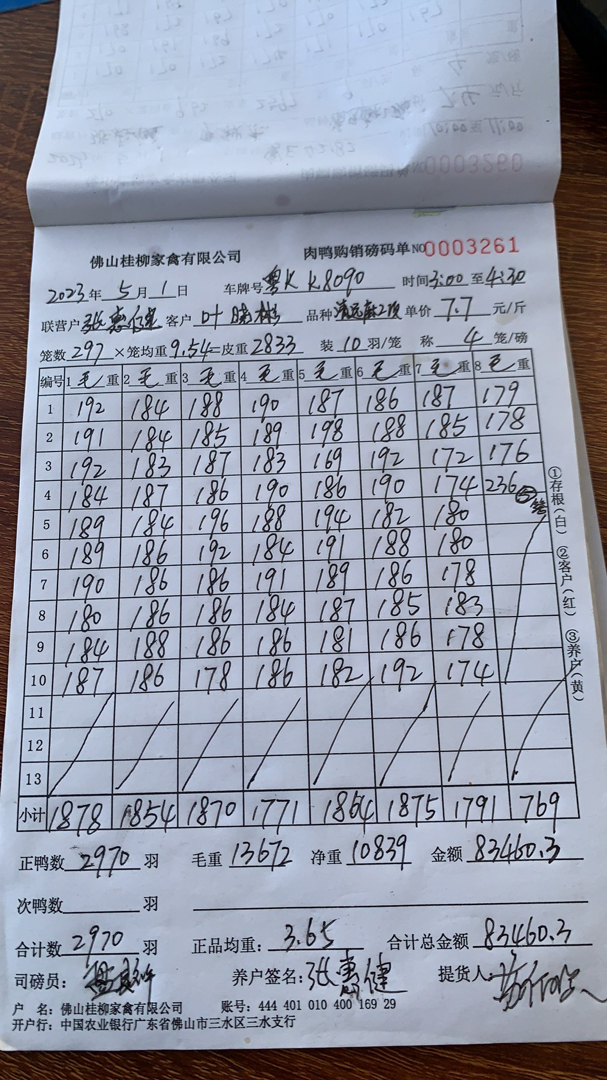 0003260
佛山桂柳家禽有限公司 肉鸭购销磅码单 NO 0003261
2023年5月1日 车牌号 粤K K8090 时间 3:00 至 4:30
联营户 张惠健 客户 叶 品种 单价 7.7 元/斤
笼数 297 ×笼均重 9.54 =皮重 2833 装 10 羽/笼 称 4 笼/磅
编号 1 毛 重 2 毛 重 3 毛 重 4 毛 重 5 毛 重 6 毛 重 7 毛 重 8 毛 重
1 192 184 188 190 187 186 187 179
2 191 184 185 189 198 188 185 178
3 192 183 187 183 169 192 172 176
4 184 187 186 190 186 190 174 236
5 189 184 196 188 194 182 180
6 189 186 192 184 191 188 180
7 190 186 186 191 189 186 178
8 180 186 186 184 187 185 183
9 184 188 186 186 181 186 178
10 187 186 178 186 182 192 174
11
12
13
小计 1878 1854 1870 1771 1864 1875 1791 769
①存根(白) ②客户(红) ③养户(黄)
正鸭数 2970 羽 毛重 13672 净重 10839 金额 83460.3
次鸭数 羽
合计数 2970 羽 正品均重: 3.65 合计总金额 83460.3
司磅员: 养户签名: 张惠健 提货人:
户 名: 佛山桂柳家禽有限公司 账号: 444 401 010 400 169 29
开户行: 中国农业银行广东省佛山市三水区三水支行